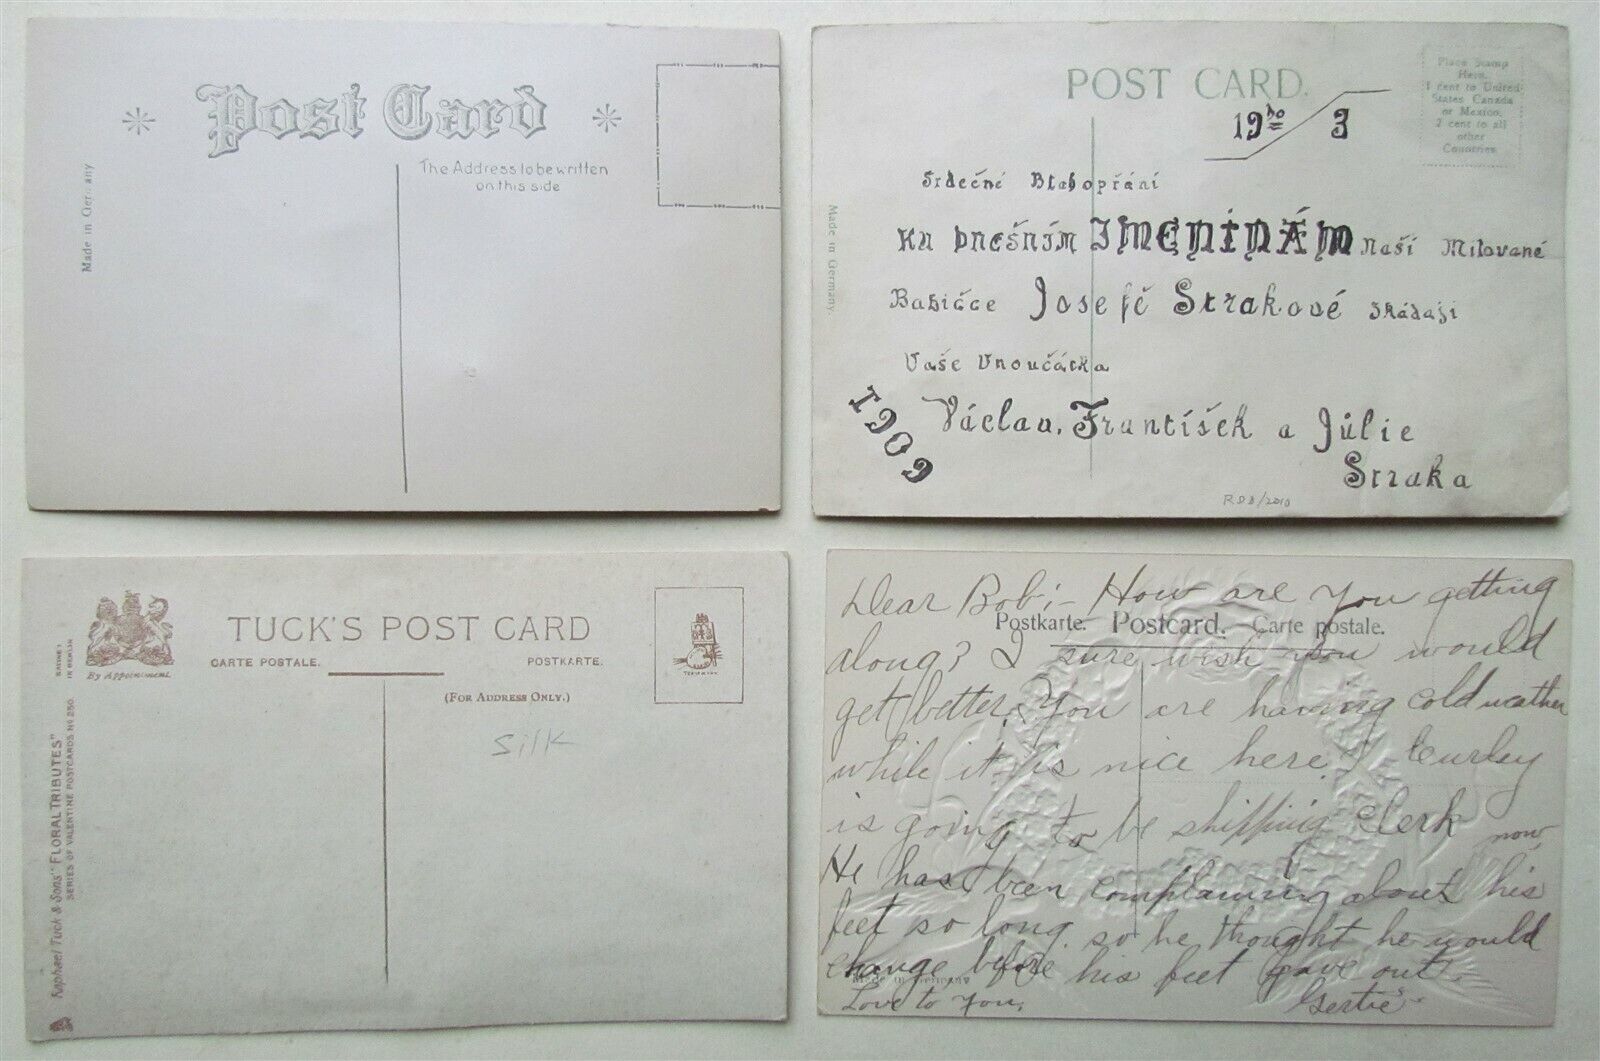 Post Card
The Address to be written
on this side
Made in Germany
POST CARD.
Place Stamp
Here.
1 cent to United
States Canada
or Mexico,
2 cent to all
other
Countries
19ho 3
Made in Germany.
Srdečné Blahopřání
Ku Dnešním JMENINÁM Naší Milované
Babičce Josefě Strakové skádají
Vaše Vnoučátka
1909
Václav, František a Júlie
Straka
RDB/2010
TUCK'S POST CARD
CARTE POSTALE. POSTKARTE.
(FOR ADDRESS ONLY.)
By Appointment
silk
Raphael Tuck & Sons' "FLORAL TRIBUTES"
SERIES OF VALENTINE POSTCARDS No 250
IN BERLIN
Postkarte. Postcard. Carte postale.
Dear Bob;- How are you getting
along? I sure wish you would
get better. You are having cold weather
while it is nice here. Curley
is going to be shipping clerk now
He has been complaining about his
feet so long. so he thought he would
change before his feet gave out.
Made in Germany
Love to You,
Gertie